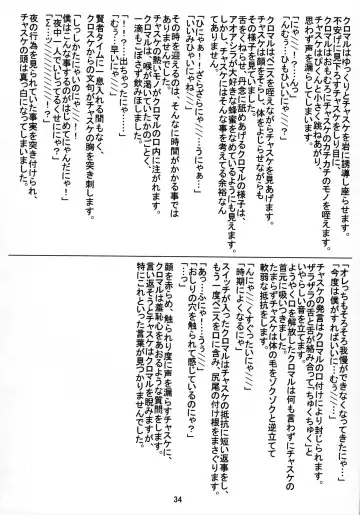 クロマルはゆっくりとチャスケを岩に誘導し座らせます。
不安げに見下ろすチャスケをしり目に、
クロマルはおもむろにチャスケのカチカチのモノを咥えます。
チャスケはぴくんと小さく跳ねあがり、
思わず声を漏らしてしまいます。
「んむぅ…ひもひいいにゃ？///」
クロマルはペニスを咥えながらチャスケを見あげます。
チャスケは顔を赤らめ、体をよじらせながら
その様子をじっと見ています。
舌をくねらせ、丹念に舐めあげるクロマルの様子は、
アオアシラが大好きな蜂蜜をなめているようにも見えます
が、今のチャスケにはそんな事を考えてる余裕なんて
ありません。
「ひにゃぁ！！ざらざらにゃ///…うにゃぁ…」
「いいみひゃいにゃね///」
その時を迎えるのは、そんなに時間がかかる事では
ありませんでした。
チャスケの熱いモノがクロマルの口内に注がれます。
クロマルは、喉が渇いていたかのごとく、
一滴もこぼさず飲みほしました。
「！！？…出ちゃったにゃ…///」
賢者タイムに一息入れる間もなく、
クロスケからの一言がチャスケの胸を突き刺します。
「しっしかたにゃいのにゃ///！
僕はこんな事するのがはじめてにゃんだにゃ！」
「夜中一人でいじってるくせににゃ？」
「！！？///」
夜の行為を見られていた事実を突き付けられ、
チャスケの頭は真っ白になってしまいました。
「オレっちもそろそろ我慢ができなくなってきたにゃ…」
「今度は僕がすればいいに…むちゅ///…」
チャスケの発言はクロマルの口付けにより封じられます。
ザラザラの舌と舌が絡み合って「ちゅくちゅく」と
いやらしい音を立てます。
ようやく口を解放したクロマルは何も言わずにチャスケの
首元に吸いつきます。
たまらずチャスケは体の毛をゾクゾクと逆立てて
軟弱な抵抗をします。
「んにゃ！くすぐったいにゃ///」
「時期によくなるにゃ」
スイッチが入ったクロマルはチャスケの抵抗に短い返事をし、
もう一度ペニスを口に含み、尻尾の付け根をまさぐります。
「あっ…ふにゃ…！うぅ///」
「おしりの穴を触られて感じているのにゃ？」
「…っ」
頭を赤らめ、触られり度に声を漏らすチャスケに、
クロマルは羞恥心をあおるような質問をします。
言い返そうとチャスケはクロマルを睨みますが、
特にこれといった言葉が見つかりませんでした。
34